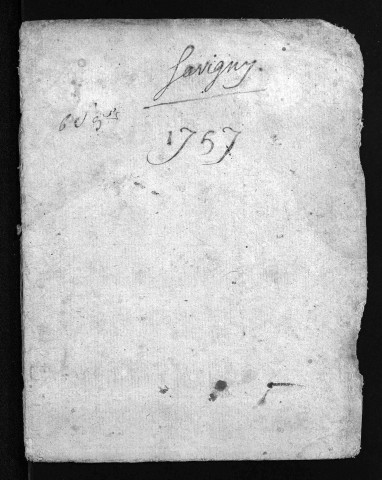 Savigny.
1757